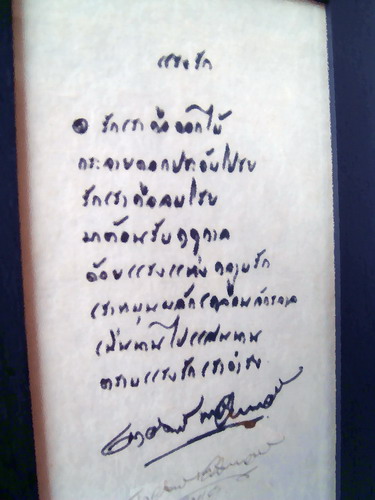 แรงรัก
๏ รักเราคือดอกไม้
กระจายดอกประดับโปรย
รักเราคือลมโชย
มาต้อนรับฤดูกาล
ด้วยแรงแห่งความรัก
เราหมุนผลักเคลื่อนจักรวาล
เนิ่นนานไปแสนนาน
ตราบแรงรักเราดำรง